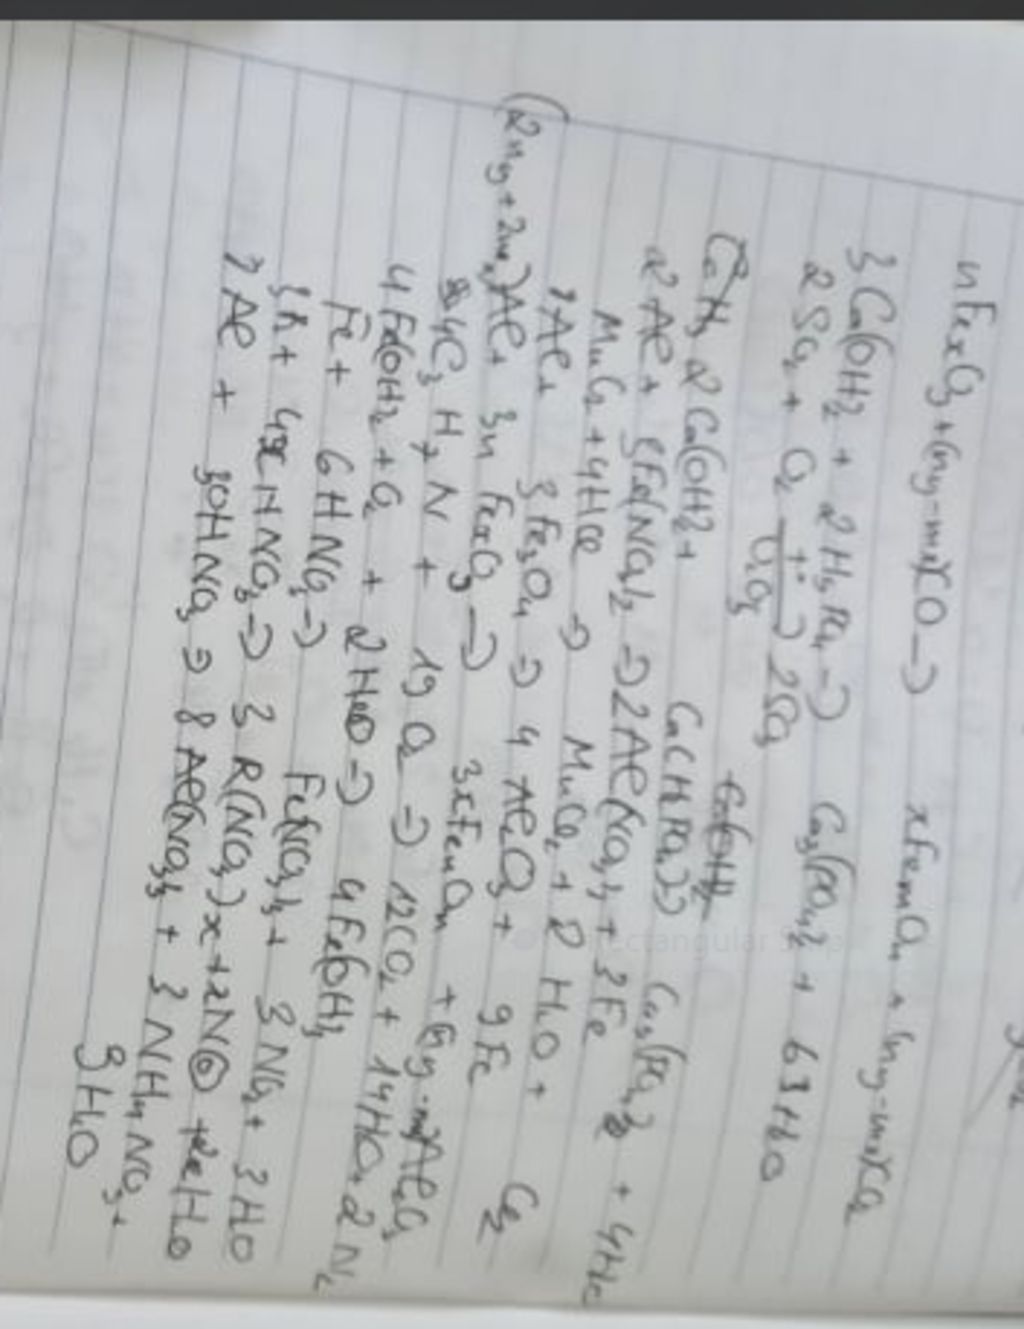 nFexO3 + (ny-mx)CO → xFemOn + (ny-mx)CO2
3Ca(OH)2 + 2H3PO4 → Ca3(PO4)2 + 6H2O
2SO2 + O2 → 2SO3
2Ca(OH)2 + Ca(H2PO4)2 Ca3(PO4)2 + 4H2O
2Al + 3Fe(NO3)2 → 2Al(NO3)3 + 3Fe
MnO2 + 4HCl → MnCl2 + 2H2O + Cl2
Al + 3Fe3O4 → 4Al2O3 + 9Fe
Al + 3n FexO3 → 3xFemOn +
4C3H7N + 19O2 → 12CO2 + 14H2O + 2N2
4Fe(OH)2 + O2 + 2H2O → 4Fe(OH)3
Fe + 6HNO3 → Fe(NO3)3 + 3NO2 + 3H2O
3R + 4xHNO3 → 3R(NO3)x + xNO + 2xH2O
Al + 30HNO3 → 8Al(NO3)3 + 3NH4NO3 +
9H2O